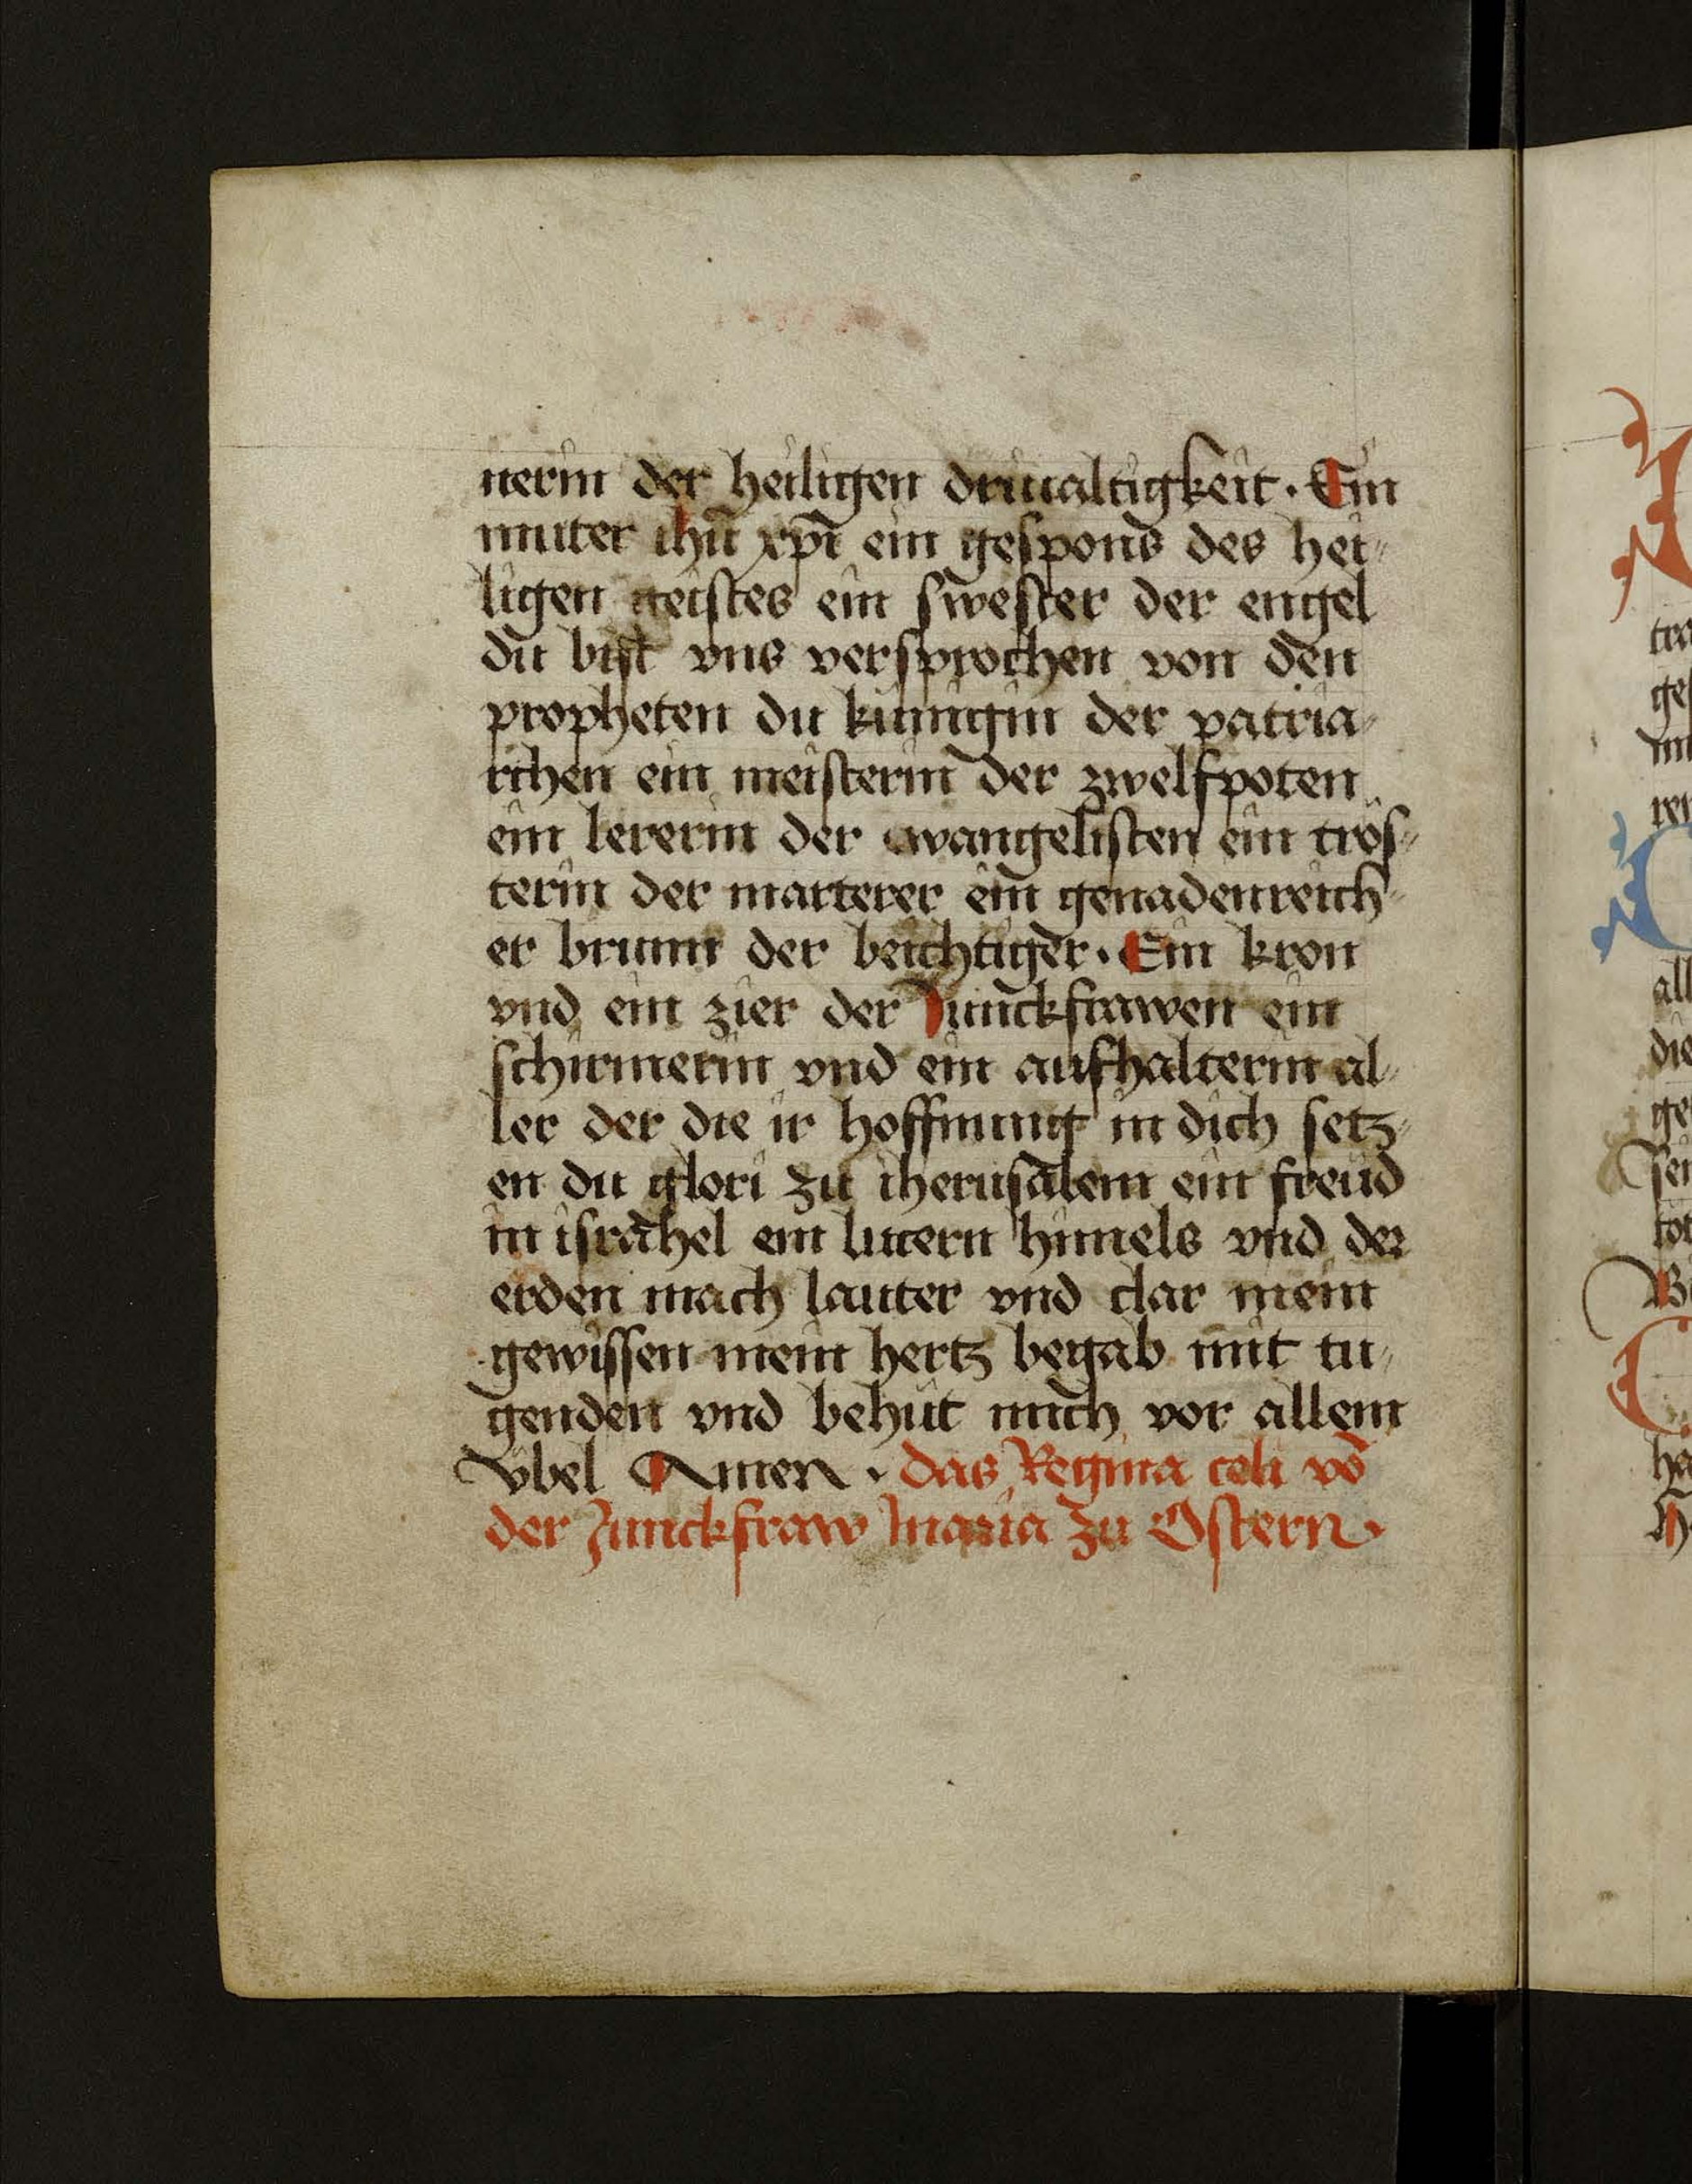 nerin der heiligen driualtigkeit · Ein
muter ihū xpī ein gespons des hei⸗
ligen geistes ein swester der engel
du bist vns versprochen von den
propheten du künigin der patria⸗
rchen ein meisterin der zwelfpoten
ein lererin der ewangelisten ein trös⸗
terin der marterer ein genadenreich⸗
er brunn der beichtiger · Ein kron
vnd ein zier der Junckfrawen ein
schirmerin vnd ein aufhalterin al⸗
ler der die ir hoffnung in dich setz⸗
en du glori zu iherusalem ein freüd
in israhel ein lucern himels vnd der
erden mach lauter vnd clar mein
gewissen mein hertz begab mit tu⸗
genden vnd behüt mich vor allem
Vbel Amen · das Regina celi vō
der Junckfraw maria zu Ostern ·